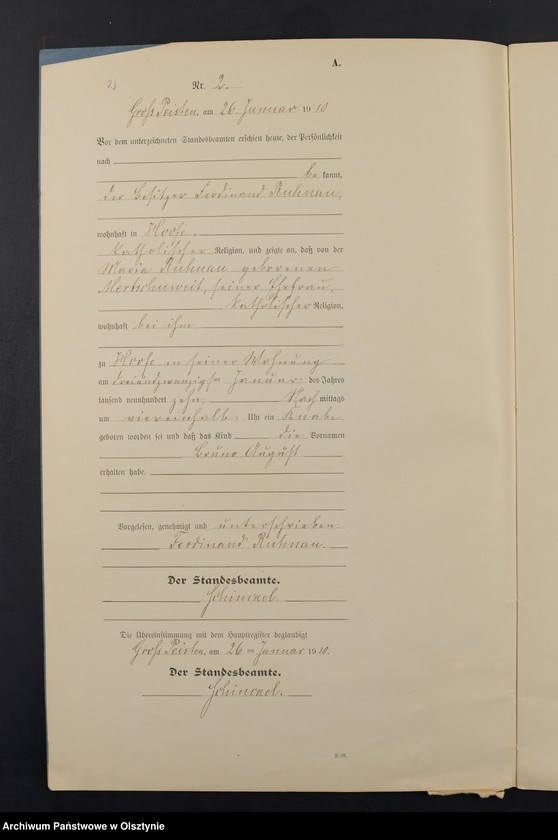 A.
Nr. 2.
Groß Peisten, am 26. Januar 1910
Vor dem unterzeichneten Standesbeamten erschien heute, der Persönlichkeit
nach
be kannt,
der Besitzer Ferdinand Ruhnau,
wohnhaft in Hoofe
katholischer Religion, und zeigte an, daß von der
Maria Ruhnau geborenen
seiner Ehefrau,
katholischer Religion,
wohnhaft bei ihm
zu Hoofe in seiner Wohnung
am dreiundzwanzigsten Januar des Jahres
tausend neunhundert zehn Nach mittags
um viereinhalb Uhr ein Knabe
geboren worden sei und daß das Kind die Vornamen
Bruno August
erhalten habe.
Vorgelesen, genehmigt und unterschrieben
Ferdinand Ruhnau.
Der Standesbeamte.
Schinckel.
Die Übereinstimmung mit dem Hauptregister beglaubigt
Groß Peisten, am 26ten Januar 1910.
Der Standesbeamte.
Schinckel.
Archiwum Państwowe w Olsztynie